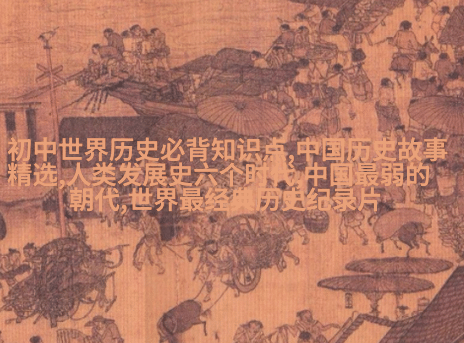 初中世界历史必背知识点,中国历史故事
精选,人类发展史六个时代,中国最弱的
朝代,世界最经典历史纪录片